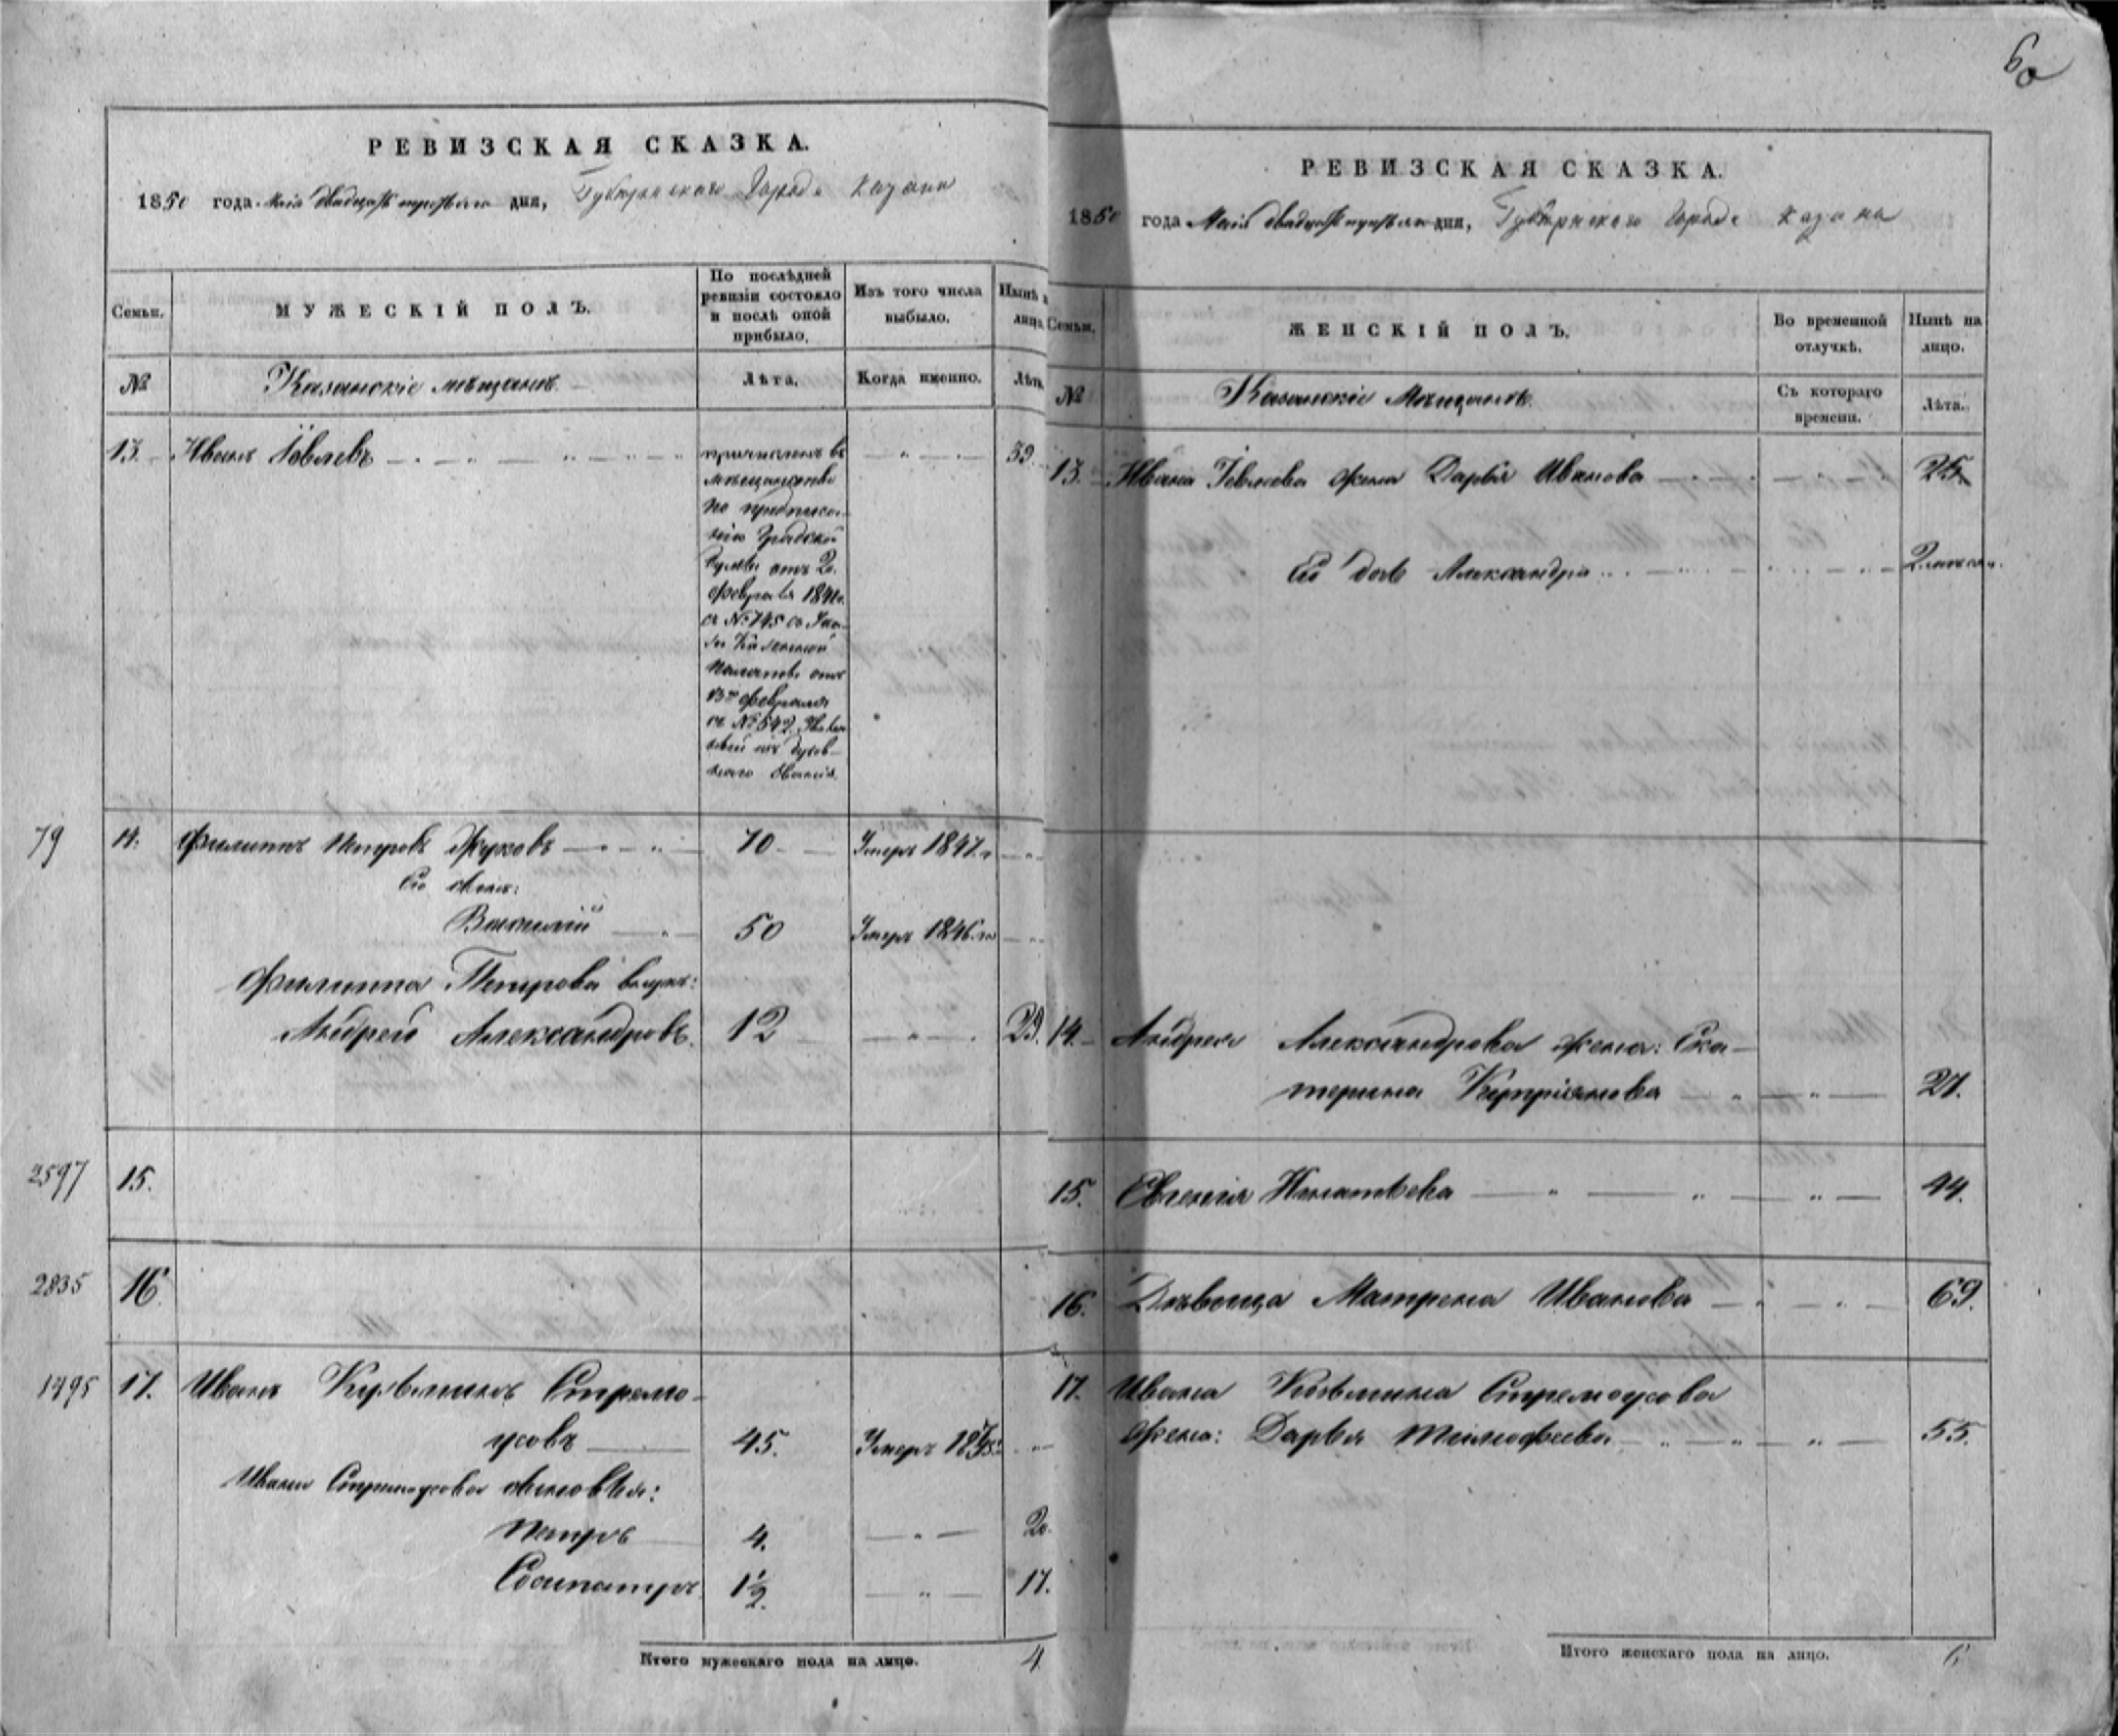 6
РЕВИЗСКАЯ СКАЗКА.
1850 года Маія двадцать третьяго дня, Губернскаго Города Казани
Семьи.
МУЖЕСКІЙ ПОЛЪ.
По послѣдней
ревизіи состояло
и послѣ оной
прибыло.
Изъ того числа
выбыло.
Нынѣ
лицо.
№
Казанскіе мѣщане
Лѣта.
Когда именно.
Лѣта
13. Иванъ Іовлевъ 39.
причисленъ въ
мѣщанство
по предписа-
нію Градской
Думы отъ 20.
февраля
за № 745 съ Ука-
за Казенной
Палаты отъ
13го февраля
за № 542
изъ духов-
наго званія.
79 14. Филиппъ Петровъ Жуковъ 70 Умеръ 1847.
Его сынъ:
Василій 50 Умеръ 1846.
Филиппа Петрова внукъ:
Андрей Александровъ. 12 23.
2597 15.
2835 16.
1495 17. Иванъ Кузьминъ Стремо-
усовъ 45. Умеръ
Ивана Стремоусова сыновья:
Петръ 4. 20.
Сосипатръ 1½. 17.
Итого мужескаго пола на лицо. 4
РЕВИЗСКАЯ СКАЗКА.
1850 года Маія двадцать третьяго дня, Губернскаго Города Казани
Семьи.
ЖЕНСКІЙ ПОЛЪ.
Во временной
отлучкѣ.
Нынѣ на
лицо.
№
Казанскіе Мѣщане
Съ котораго
времени.
Лѣта.
13. Ивана Іовлева жена Дарья Иванова 25
Его дочь Александра 2 месяца.
14. Андрея Александрова жена: Ека-
терина Купріянова 27.
15. Евгенія Игнатьева 44.
16. Дѣвица Матрена Иванова 69.
17. Ивана Козьмина Стремоусова
жена: Дарья Тимофеева 55.
Итого женскаго пола на лицо. 6